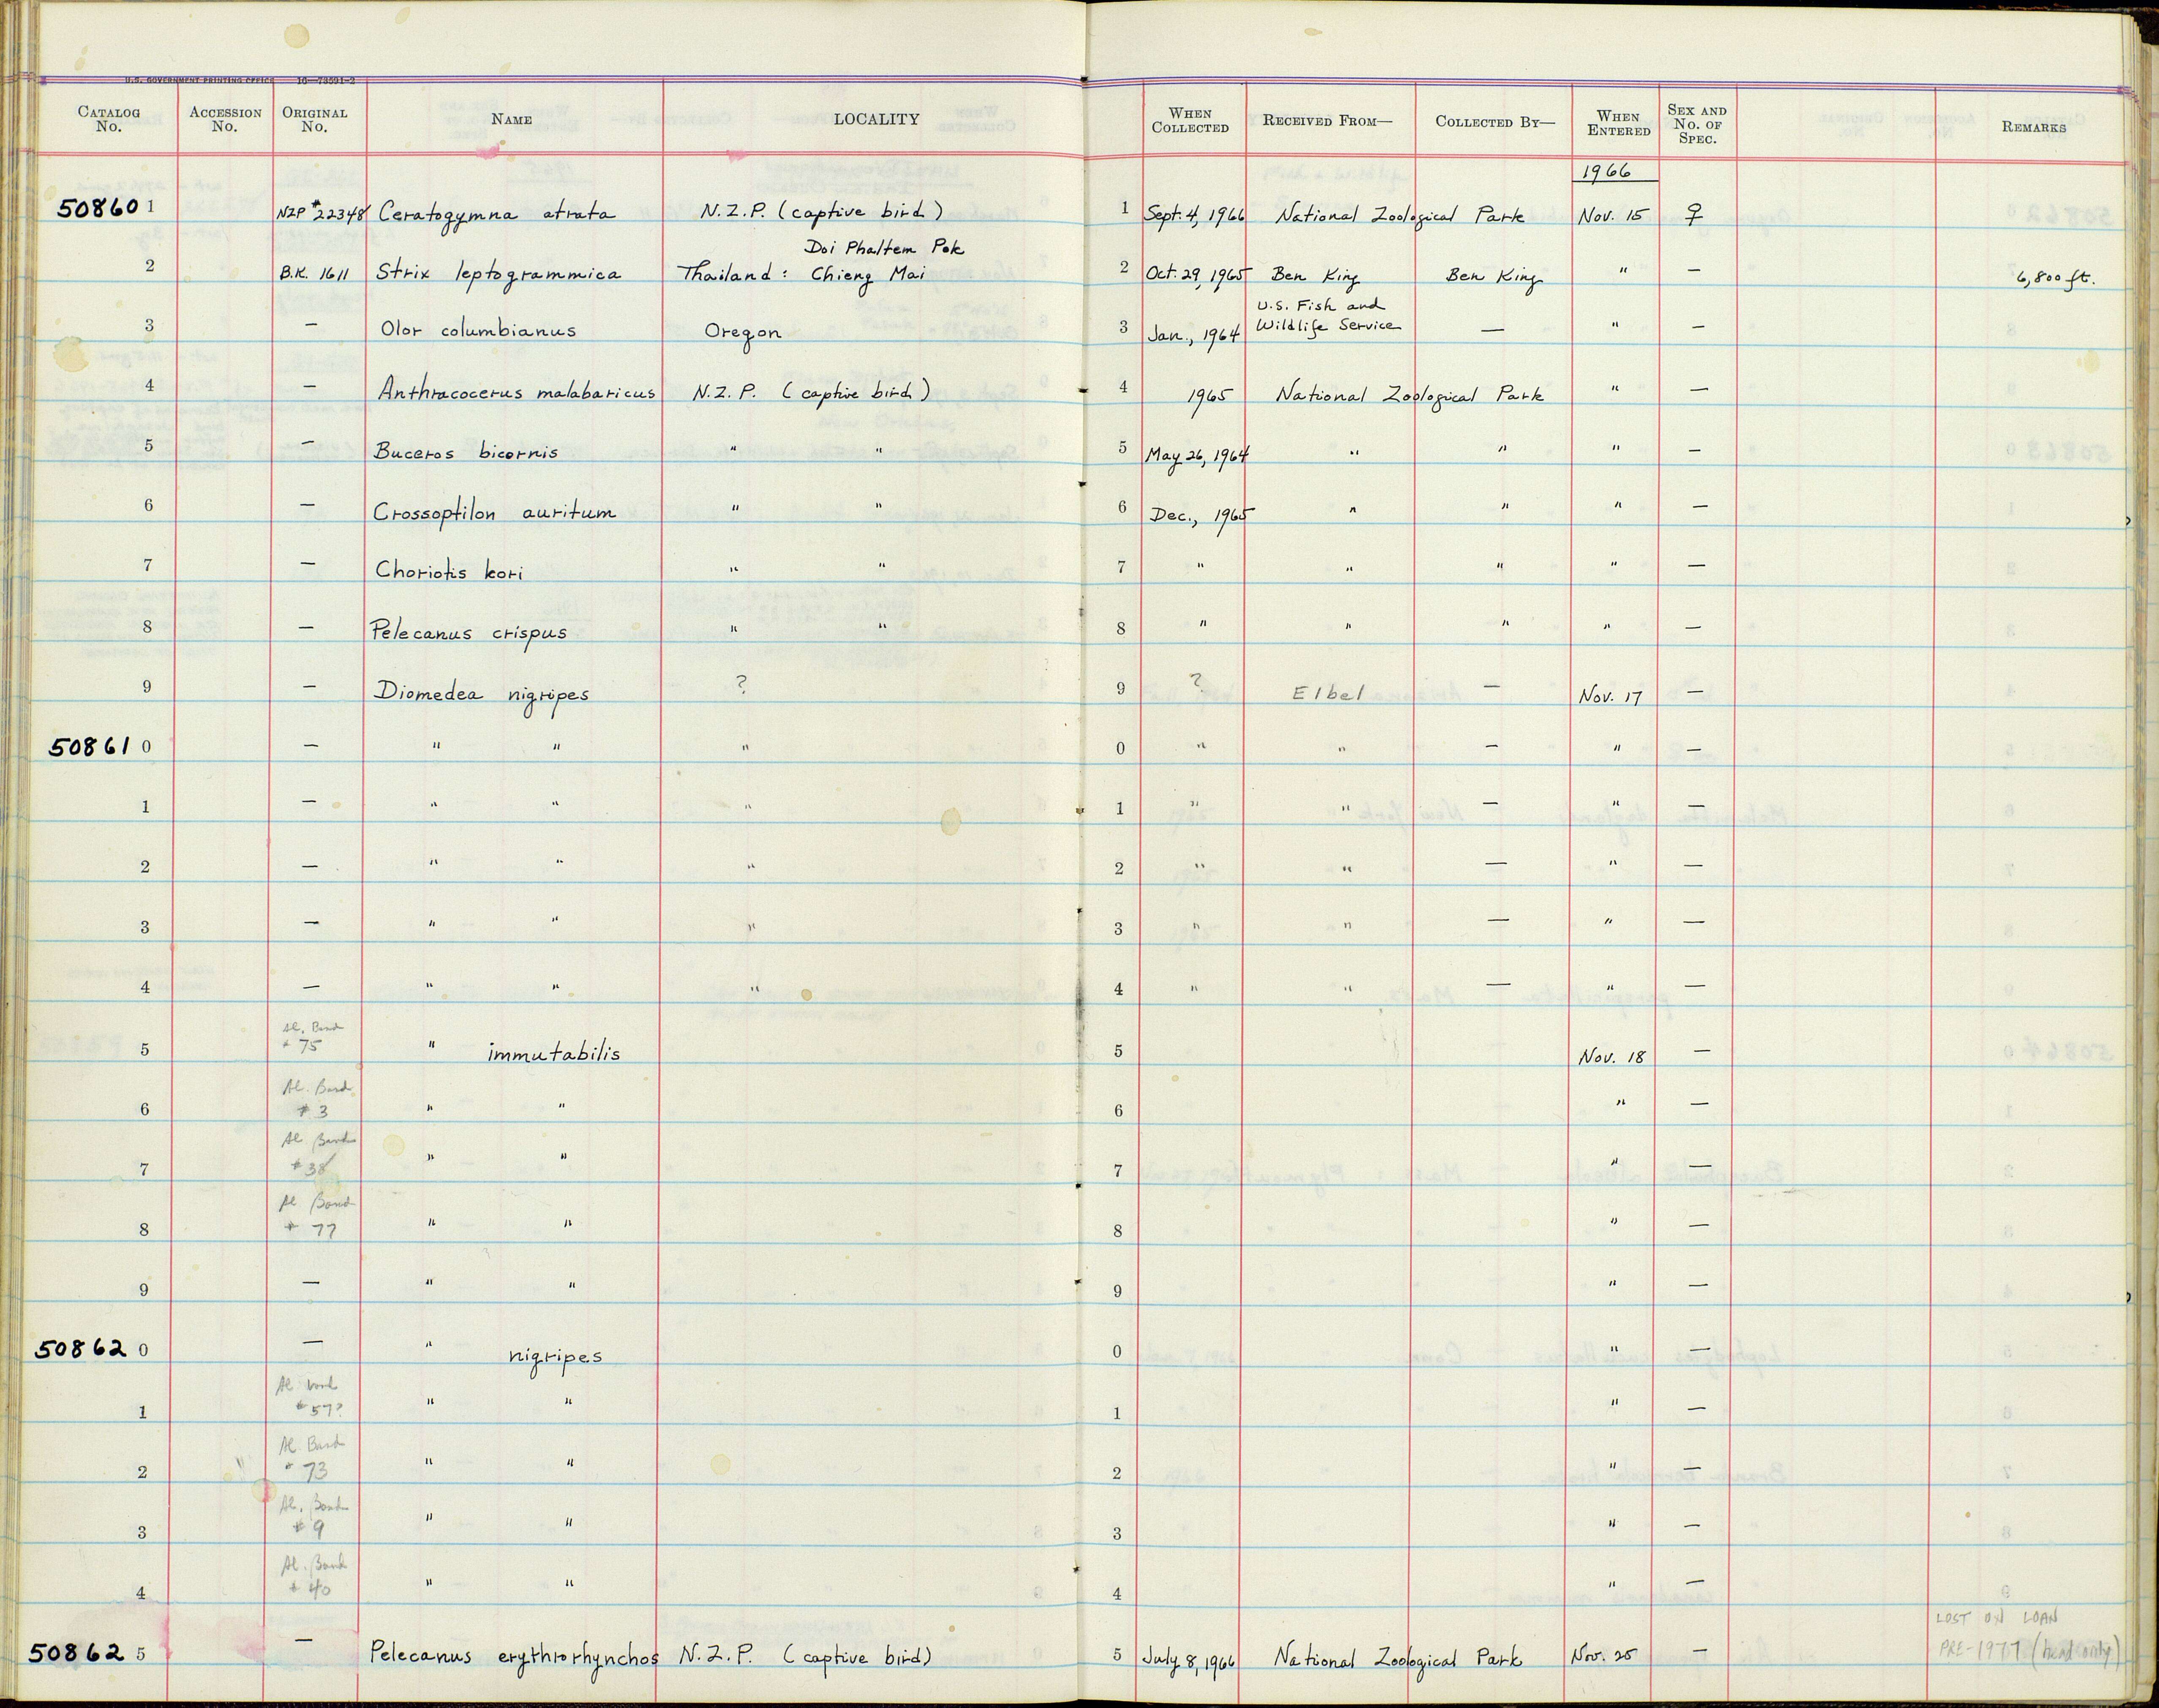 U.S. GOVERNMENT PRINTING OFFICE 16—73591-2
CATALOG No. ACCESSION No. ORIGINAL No. NAME LOCALITY WHEN COLLECTED RECEIVED FROM— COLLECTED BY— WHEN ENTERED SEX AND No. OF SPEC. REMARKS
1966
50860 1 NZP #22348 Ceratogymna atrata N.Z.P. (captive bird) 1 Sept. 4, 1966 National Zoological Park Nov. 15 ♀
Doi Phaltem Pok
2 B.K. 1611 Strix leptogrammica Thailand: Chieng Mai 2 Oct. 29, 1965 Ben King Ben King " — 6,800 ft.
U.S. Fish and
3 — Olor columbianus Oregon 3 Jan., 1964 Wildlife Service — " —
4 — Anthracocerus malabaricus N.Z.P. (captive bird) 4 1965 National Zoological Park " —
5 — Buceros bicornis " " 5 May 26, 1964 " " " —
6 — Crossoptilon auritum " " 6 Dec., 1965 " " " —
7 — Choriotis kori " " 7 " " " " —
8 — Pelecanus crispus " " 8 " " " " —
9 — Diomedea nigripes ? 9 ? Elbel — Nov. 17 —
50861 0 — " " " 0 " " — " —
1 — " " " 1 " " — " —
2 — " " " 2 " " — " —
3 — " " " 3 " " — " —
4 — " " " 4 " " — " —
Al. Band
5 # 75 " immutabilis 5 Nov. 18 —
Al. Band
6 # 3 " " 6 " —
Al Band
7 # 38 " " 7 " —
Al Band
8 # 77 " " 8 " —
9 — " " 9 " —
50862 0 — " nigripes 0 " —
Al band
1 # 57? " " 1 " —
Al Band
2 # 73 " " 2 " —
Al. Band
3 # 9 " " 3 " —
Al. Band
4 # 40 " " 4 " —
LOST ON LOAN
50862 5 — Pelecanus erythrorhynchos N.Z.P. (captive bird) 5 July 8, 1966 National Zoological Park Nov. 25 — PRE-1977 (head only)